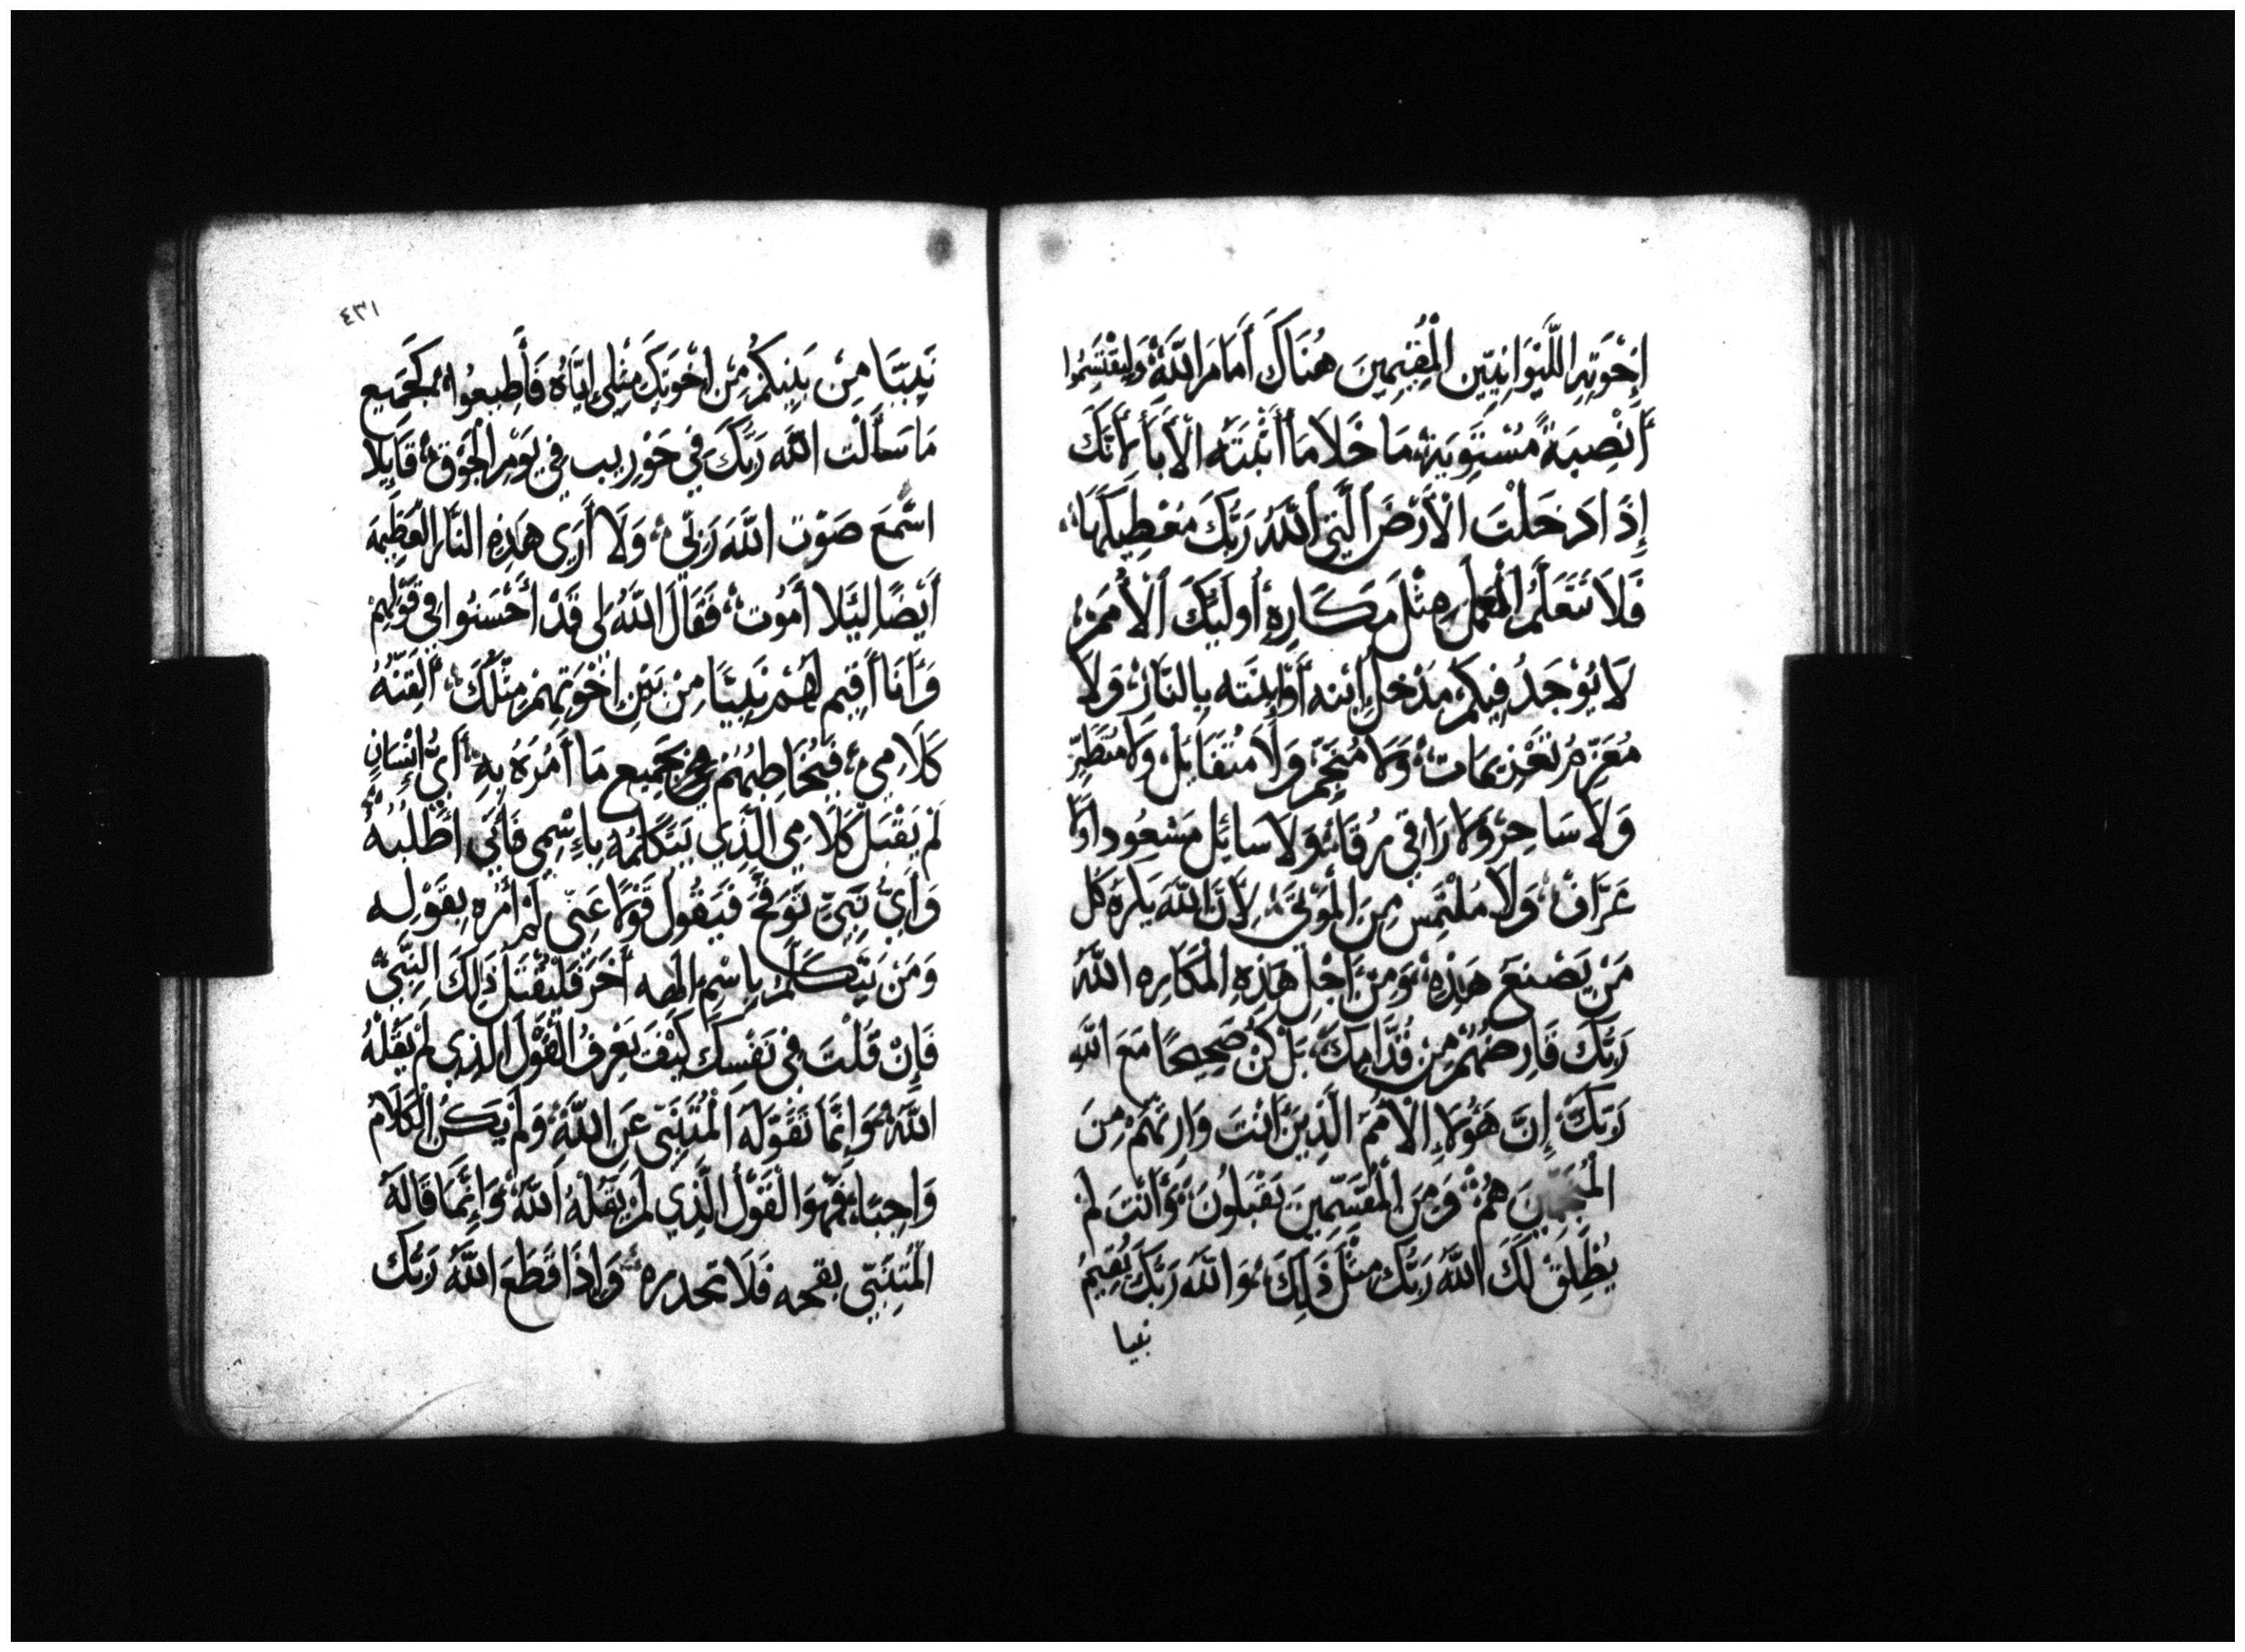 إِخْوَتِهِ اللَّيْوَانِيِّين الْمُقِيمِينَ هُنَاكَ أَمَامَ اللَّهِ وَلِيَقْتَسِمُوا
أَنْصِبَةً مُسْتَوِيَة مَا خَلَا مَا أَثْبَتَه الْأَبَاءُ لِأَنَّكَ
إِذَا دَخَلْتَ الْأَرْضَ الَّتِي اللَّهُ رَبُّكَ مُعْطِيكَهَا
فَلَا تَتَعَلَّمُ الْعَمَلَ مِثْلَ مَكَارِهِ أُولَئِكَ الْأُمَمِ
لَا يُوْجَدُ فِيكُم مُدْخِل إِبْنه أَوِ ابْنَته بِالنَّارْ وَلَا
مُعَزِّمُ تَعْزِيمَات وَلَا مُنَجِّمْ وَلَا مُتَفَائِل وَلَا مُتَطَيِّرْ
وَلَا سَاحِرْ وَلَا رَاقِي رُقَا وَلَا سَائِل مَسْعُود اوْلَا
عَرَّافْ وَلَا مُلْتَمِسْ مِنَ الْمَوْتَى لِأَنَّ اللَّهَ يَكْرَهُ كُل
مَنْ يَصْنَعَ هَذِهِ وَمِنْ اَجْلِ هَذِهِ الْمَكَارِه اللَّهُ
رَبُّكَ قَارِضُهُمْ مِن قُدَّامِكَ بَلْ كُنْ صَحِيحًا مَعَ اللَّهِ
رَبِّكَ إِنَّ هَؤُلَاءِ الْأُمَمَ الَّذِينَ انْتَ وَارِثُهُمْ مِنَ
هُمْ وَمِنَ الْمُقَسِّمِينَ يَقْبَلُونَ وَأَنْتَ لَمْ
يُطْلِقْ لَكَ اللَّهُ رَبُّكَ مِثْلَ ذَلِكَ وَاللَّهُ رَبُّكَ يُقِيمُ
نبيا
٤٣١
نَبِيًّا مِنْ بَيْنِكُمْ مِنْ اِخْوَتِكَ مِثْلِي اِيَّاهُ فَأَطِيعُوا كَجَمِيع
مَا سَأَلْت اللَّهَ رَبَّكَ فِي حَوْرِيب فِي يَوْمِ الْجَوْقْ قَايِلًا
اسْمَعَ صَوْت اللَّهَ رَبِّي وَلَا أَرَى هَذِهِ النَّارَ الْعَظِيمَة
أَيْضًا لِيَّلا أَمُوت فَقَالَ اللَّهُ لِي قَدْ أَحْسَنُوا فِي قَوْلِهِمْ
وَأَنَا أُقِيم لَهُمْ نَبِيًّا مِنْ بَيْنِ اِخْوَتِهِمْ مِثْلُكَ أُلَقِّنْهُ
كَلَامِي فَيُخَاطِبُهُمْ بِجَمِيع مَا أَمُرَهُ بِهِ أَيُّ إِنْسَانٍ
لَمْ يَقْبَل كَلَامِي الَّذِي يَتَكَلَّمُهُ بِاءِسْمِي فَاَنِّي اطْلُبُهُ
وَأَيُّ نَبِيّ تَوَقَّحَ فَيَقُولَ قَوْلًا عَنِّي لَمْ أَمُرْهُ بِقَوْلِه
وَمَنْ يَتَكَلَّمْ بِاسْمِ الَهه أَخَرْ فَلْيُقْتَلْ ذَلِكَ النَّبِيّ
فَإِنْ قُلْتَ فِي نَفْسِكَ كَيْفَ يُعْرِفُ الْقَوْلَ الَّذِي لَمْ يَقُلْهُ
اللَّهُ وَإِنَّمَا تَقَوَّلَهُ الْمُتَنَبِّي عَنِ اللَّهِ وَلَمْ يَكُنِ الْكَلَامُ
وَاجِبًا فَهْوَ الْقَوْلُ الَّذِي لَمْ يَقُلْهُ اللَّهُ وَإِنَّمَا قَالَهُ
الْمُتَنَبِّي بقحه فَلَا تحدره وَإِذَا قَطَعَ اللَّهُ رَبُّكَ